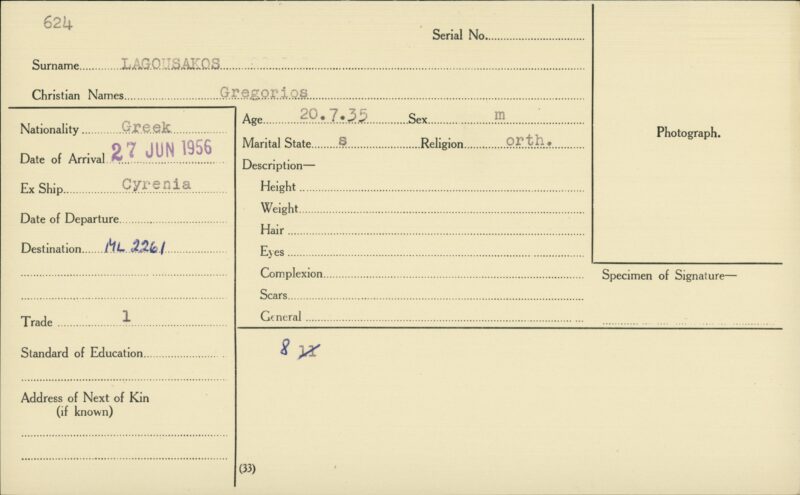 624
Serial No.
Surname LAGOUSAKOS
Christian Names Gregorios
Nationality Greek
Date of Arrival 27 JUN 1956
Ex Ship Cyrenia
Date of Departure
Destination ML 2261
Trade 1
Standard of Education
Address of Next of Kin
(if known)
Age 20.7.35 Sex m
Marital State s Religion orth.
Description—
Height
Weight
Hair
Eyes
Complexion
Scars
General
Photograph.
Specimen of Signature—
8
(33)